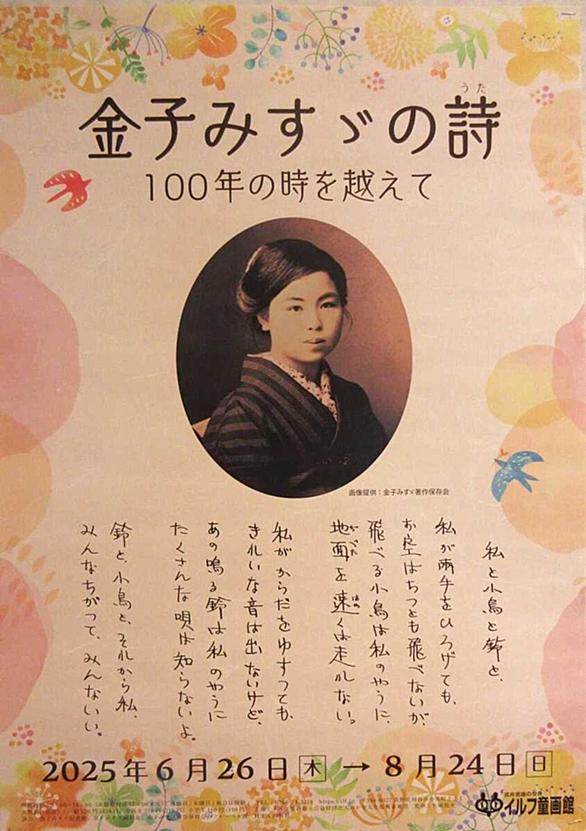 金子みすゞの詩
うた
100年の時を越えて
画像提供：金子みすゞ著作保存会
私と小鳥と鈴と、
私が両手をひろげても、
お空はちっとも飛べないが、
飛べる小鳥は私のやうに、
地面を速くは走れない。
じべた はや
私がからだをゆすっても、
きれいな音は出ないけど、
あの鳴る鈴は私のやうに
たくさんな唄は知らないよ。
鈴と、小鳥と、それから私、
みんなちがって、みんないい。
2025年6月26日木→8月24日日
武井武雄の世界
イルフ童画館